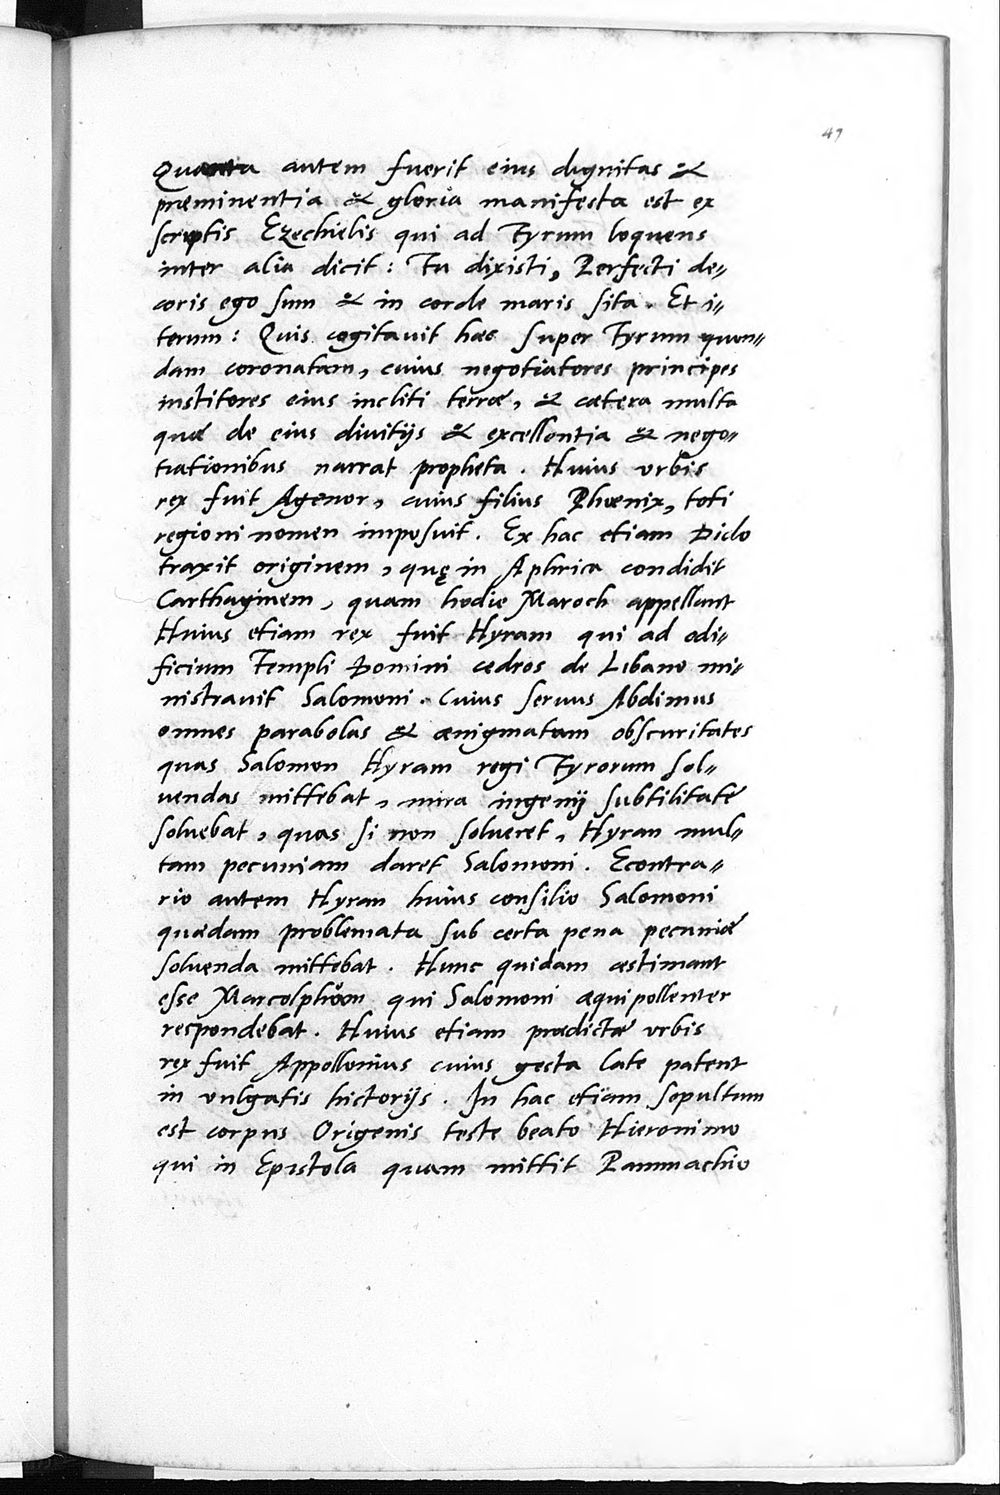 49
Quanta autem fuerit eius dignitas &
præminentia & gloria manifesta est ex
scriptis Ezechielis qui ad Tyrum loquens
inter alia dicit: Tu dixisti, Perfecti de„
coris ego sum & in corde maris sita. Et i„
terum: Quis cogitauit hæc super Tyrum quon„
dam coronatam, cuius negotiatores principes
institores eius incliti terræ, & cætera multa
quæ de eius diuitijs & excellentia & nego„
tiationibus narrat propheta. Huius vrbis
rex fuit Agenor, cuius filius Phœnix, toti
regioni nomen imposuit. Ex hac etiam Dido
traxit originem, quę in Aphrica condidit
Carthaginem, quam hodie Maroch appellant
Huius etiam rex fuit Hyram qui ad ædi„
ficium Templi Domini cedros de Libano mi„
nistrauit Salomoni. Cuius seruus Abdimus
omnes parabolas & ænigmatum obscuritates
quas Salomon Hyram regi Tyrorum sol„
uendas mittebat, mira ingenij subtilitate
soluebat, quas si non solueret, Hyran mul„
tam pecuniam daret Salomoni. Econtra„
rio autem Hyran huius consilio Salomoni
quædam problemata sub certa pena pecuniæ
soluenda mittebat. Hunc quidam æstimant
esse Marcolphum qui Salomoni æquipollenter
respondebat. Huius etiam prædictæ vrbis
rex fuit Appollonius cuius gesta late patent
in vulgatis historijs. In hac etiam sepultum
est corpus Origenis teste beato Hieronimo
qui in Epistola quam mittit Pammachio